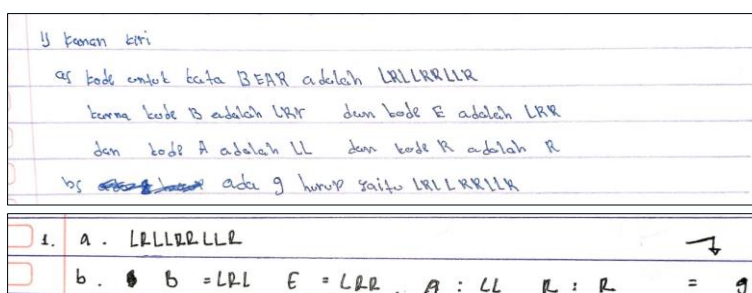 1) kanan kiri
a) kode untuk kata BEAR adalah LRLLRRLLR
karna kode B adalah LRr dan kode E adalah LRR
dan kode A adalah LL dan kode R adalah R
b) ada 9 hurup yaitu LRLLRRLLR
1. a. LRLLRRLLR
b. B = LRL E = LRR. A : LL R : R = 9